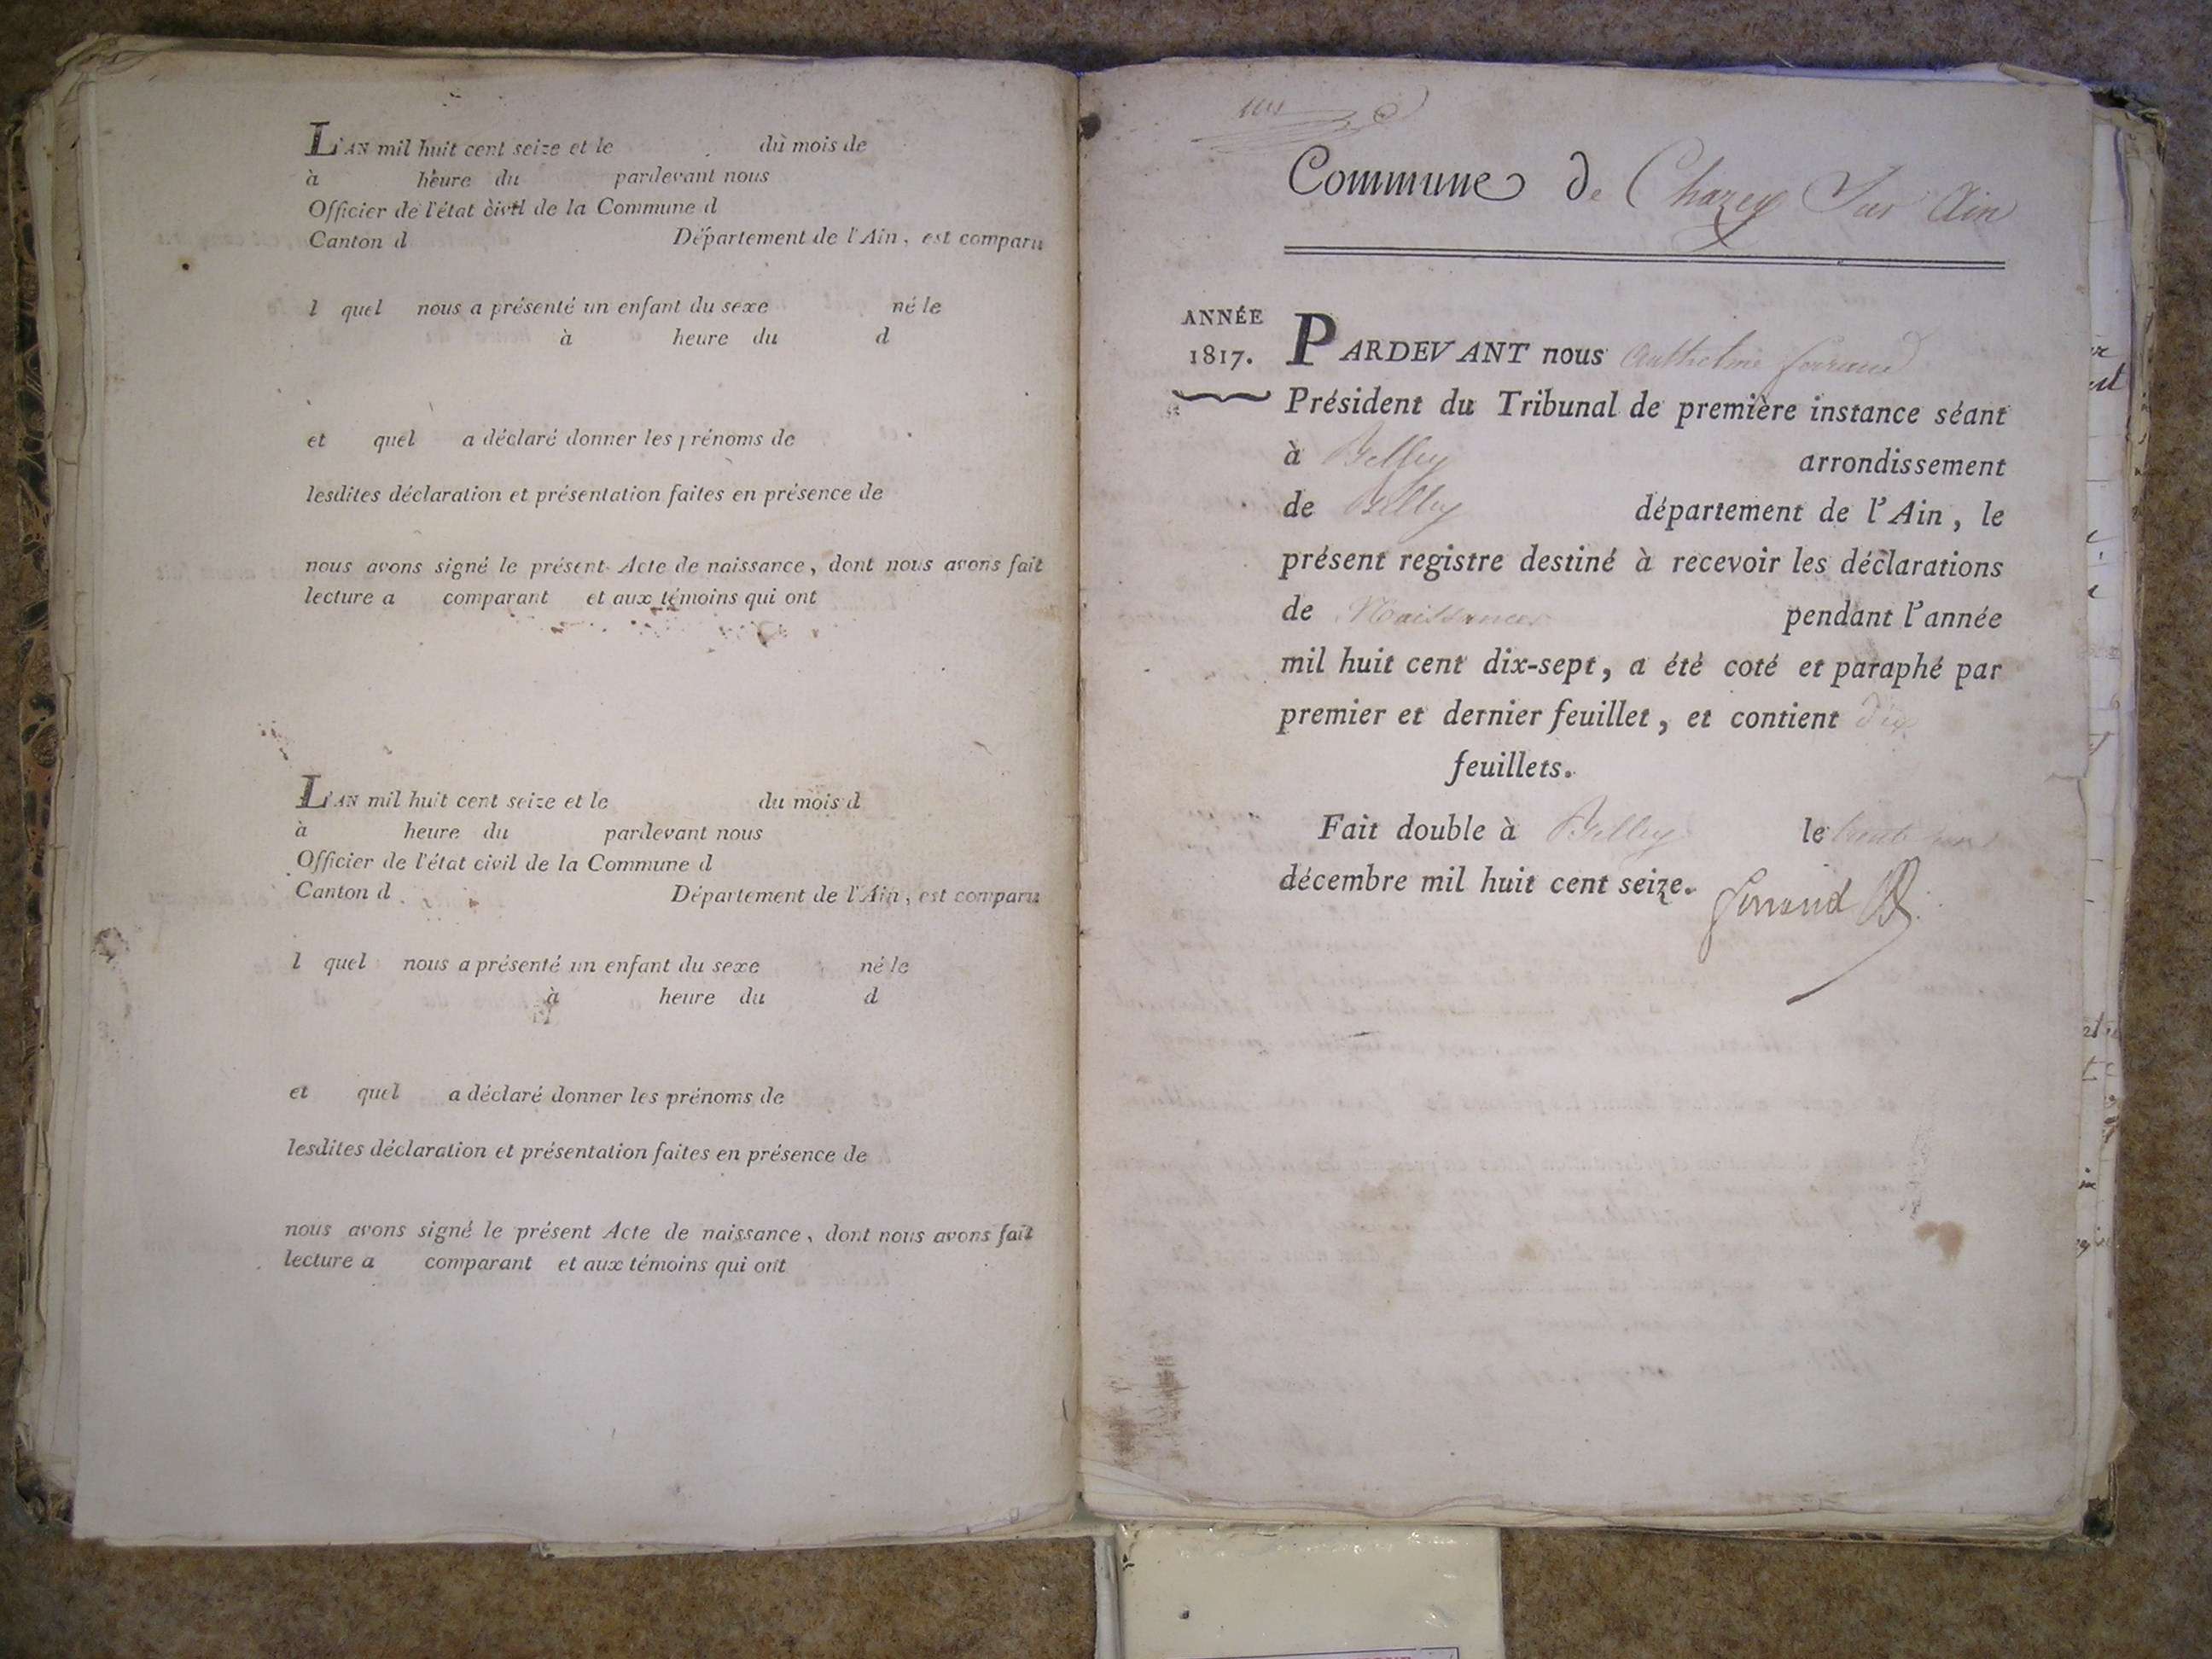 L'AN mil huit cent seize et le du mois de
à heure du pardevant nous
Officier de l'état civil de la Commune d
Canton d Département de l'Ain, est comparu
l quel nous a présenté un enfant du sexe né le
à heure du d
et quel a déclaré donner les prénoms de
lesdites déclaration et présentation faites en présence de
nous avons signé le présent Acte de naissance, dont nous avons fait
lecture a comparant et aux témoins qui ont
L'AN mil huit cent seize et le du mois d
à heure du pardevant nous
Officier de l'état civil de la Commune d
Canton d Département de l'Ain, est comparu
l quel nous a présenté un enfant du sexe né le
à heure du d
et quel a déclaré donner les prénoms de
lesdites déclaration et présentation faites en présence de
nous avons signé le présent Acte de naissance, dont nous avons fait
lecture a comparant et aux témoins qui ont
Commune de Chazey Sur Ain
ANNÉE
1817.
PARDEVANT nous Anthelme ferrand
Président du Tribunal de première instance séant
à Belley arrondissement
de Belley département de l'Ain, le
présent registre destiné à recevoir les déclarations
de Naissances pendant l'année
mil huit cent dix-sept, a été coté et paraphé par
premier et dernier feuillet, et contient dix
feuillets.
Fait double à Belley le
décembre mil huit cent seize.
ferrand